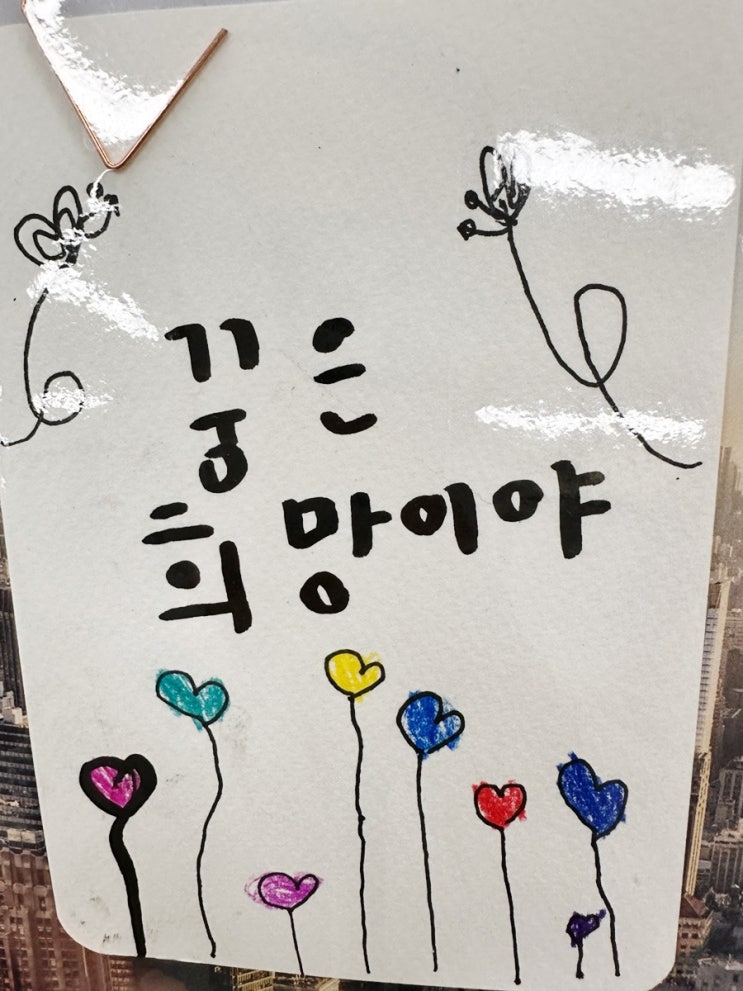 꿈은
희망이야